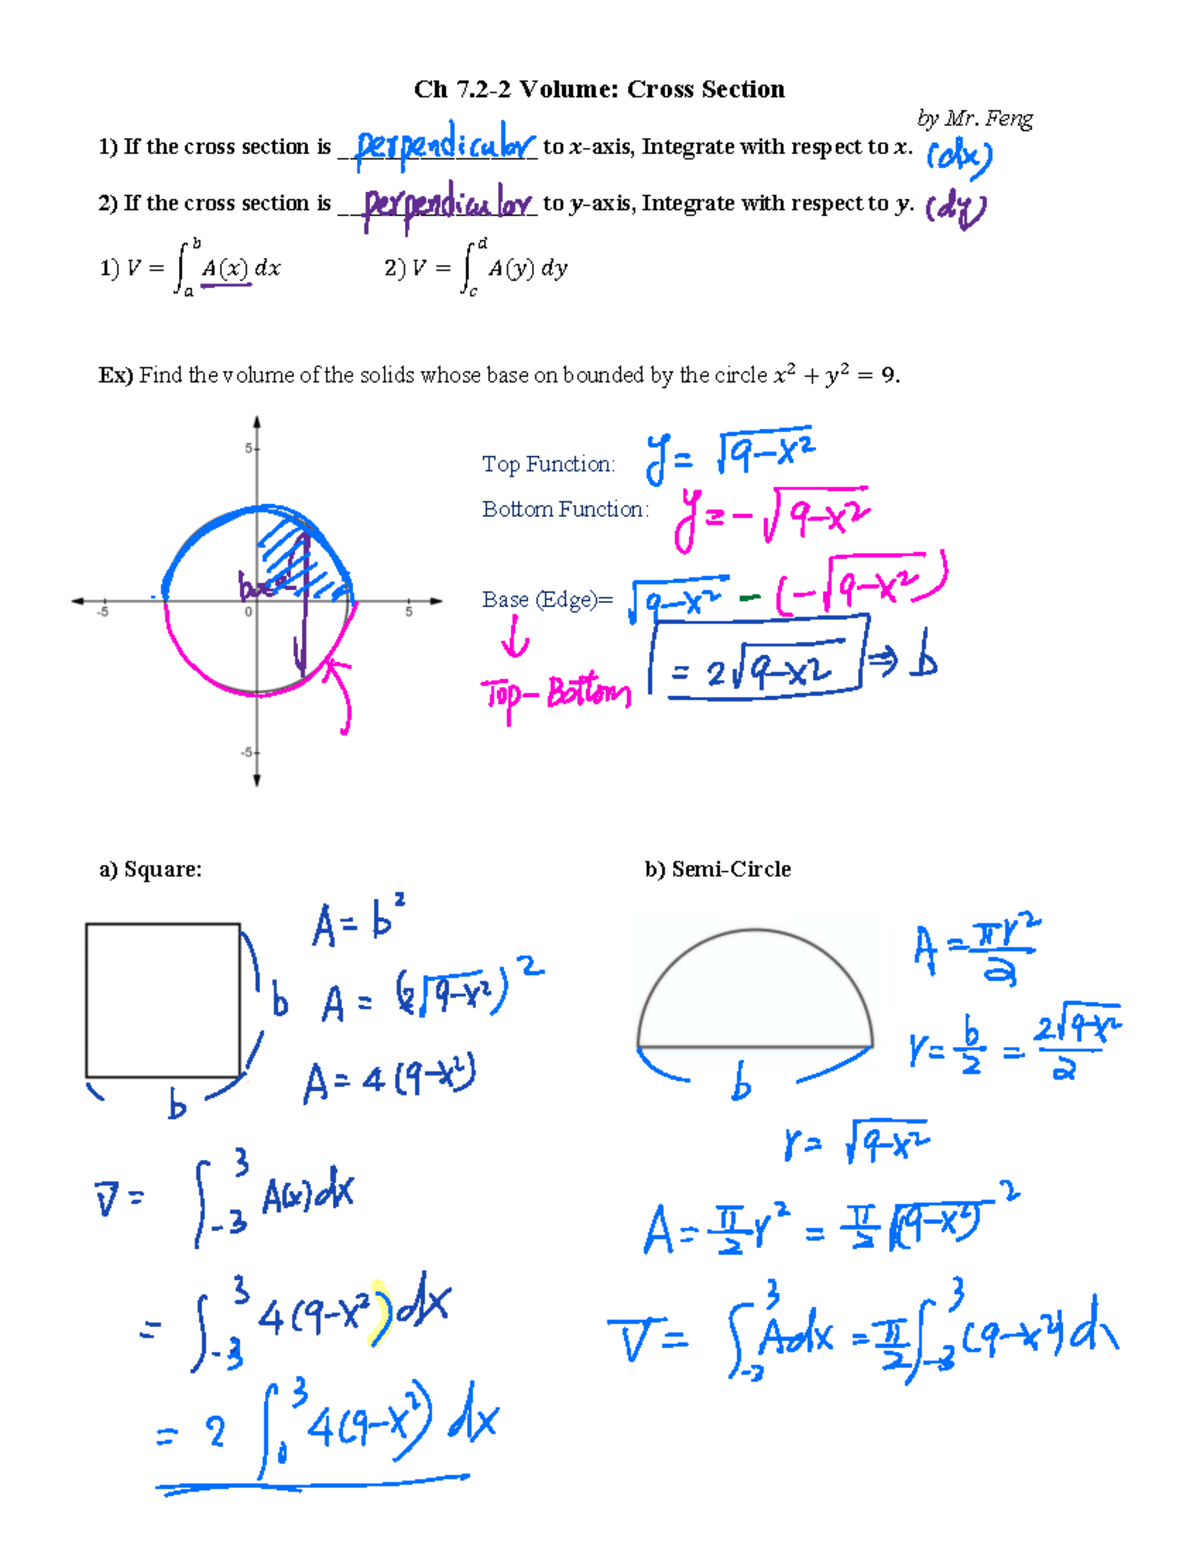 Ch 7.2-2 Volume: Cross Section
by Mr. Feng
1) If the cross section is perpendicular to x-axis, Integrate with respect to x. (dx)
2) If the cross section is perpendicular to y-axis, Integrate with respect to y. (dy)
1) V = ∫_a^b A(x) dx 2) V = ∫_c^d A(y) dy
Ex) Find the volume of the solids whose base on bounded by the circle x² + y² = 9.
5
Top Function: y = √(9-x²)
Bottom Function: y = -√(9-x²)
base
-5 0 5
Base (Edge)= √(9-x²) - (-√(9-x²))
= 2√(9-x²) ⇒ b
Top - Bottom
-5
a) Square: b) Semi-Circle
A = b²
b
A = (2√(9-x²))²
A = 4(9-x²)
b
V = ∫_-3^3 A(x)dx
= ∫_-3^3 4(9-x²)dx
= 2 ∫_0^3 4(9-x²) dx
A = πr²/2
r = b/2 = 2√(9-x²)/2
b
r = √(9-x²)
A = π/2 r² = π/2 √(9-x²)²
V = ∫_-3^3 A dx = π/2 ∫_-3^3 (9-x²) d